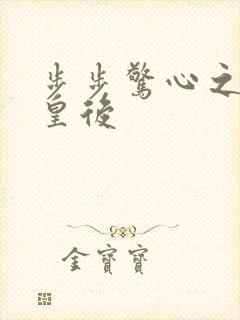 步步驚心之
皇後
金寶寶